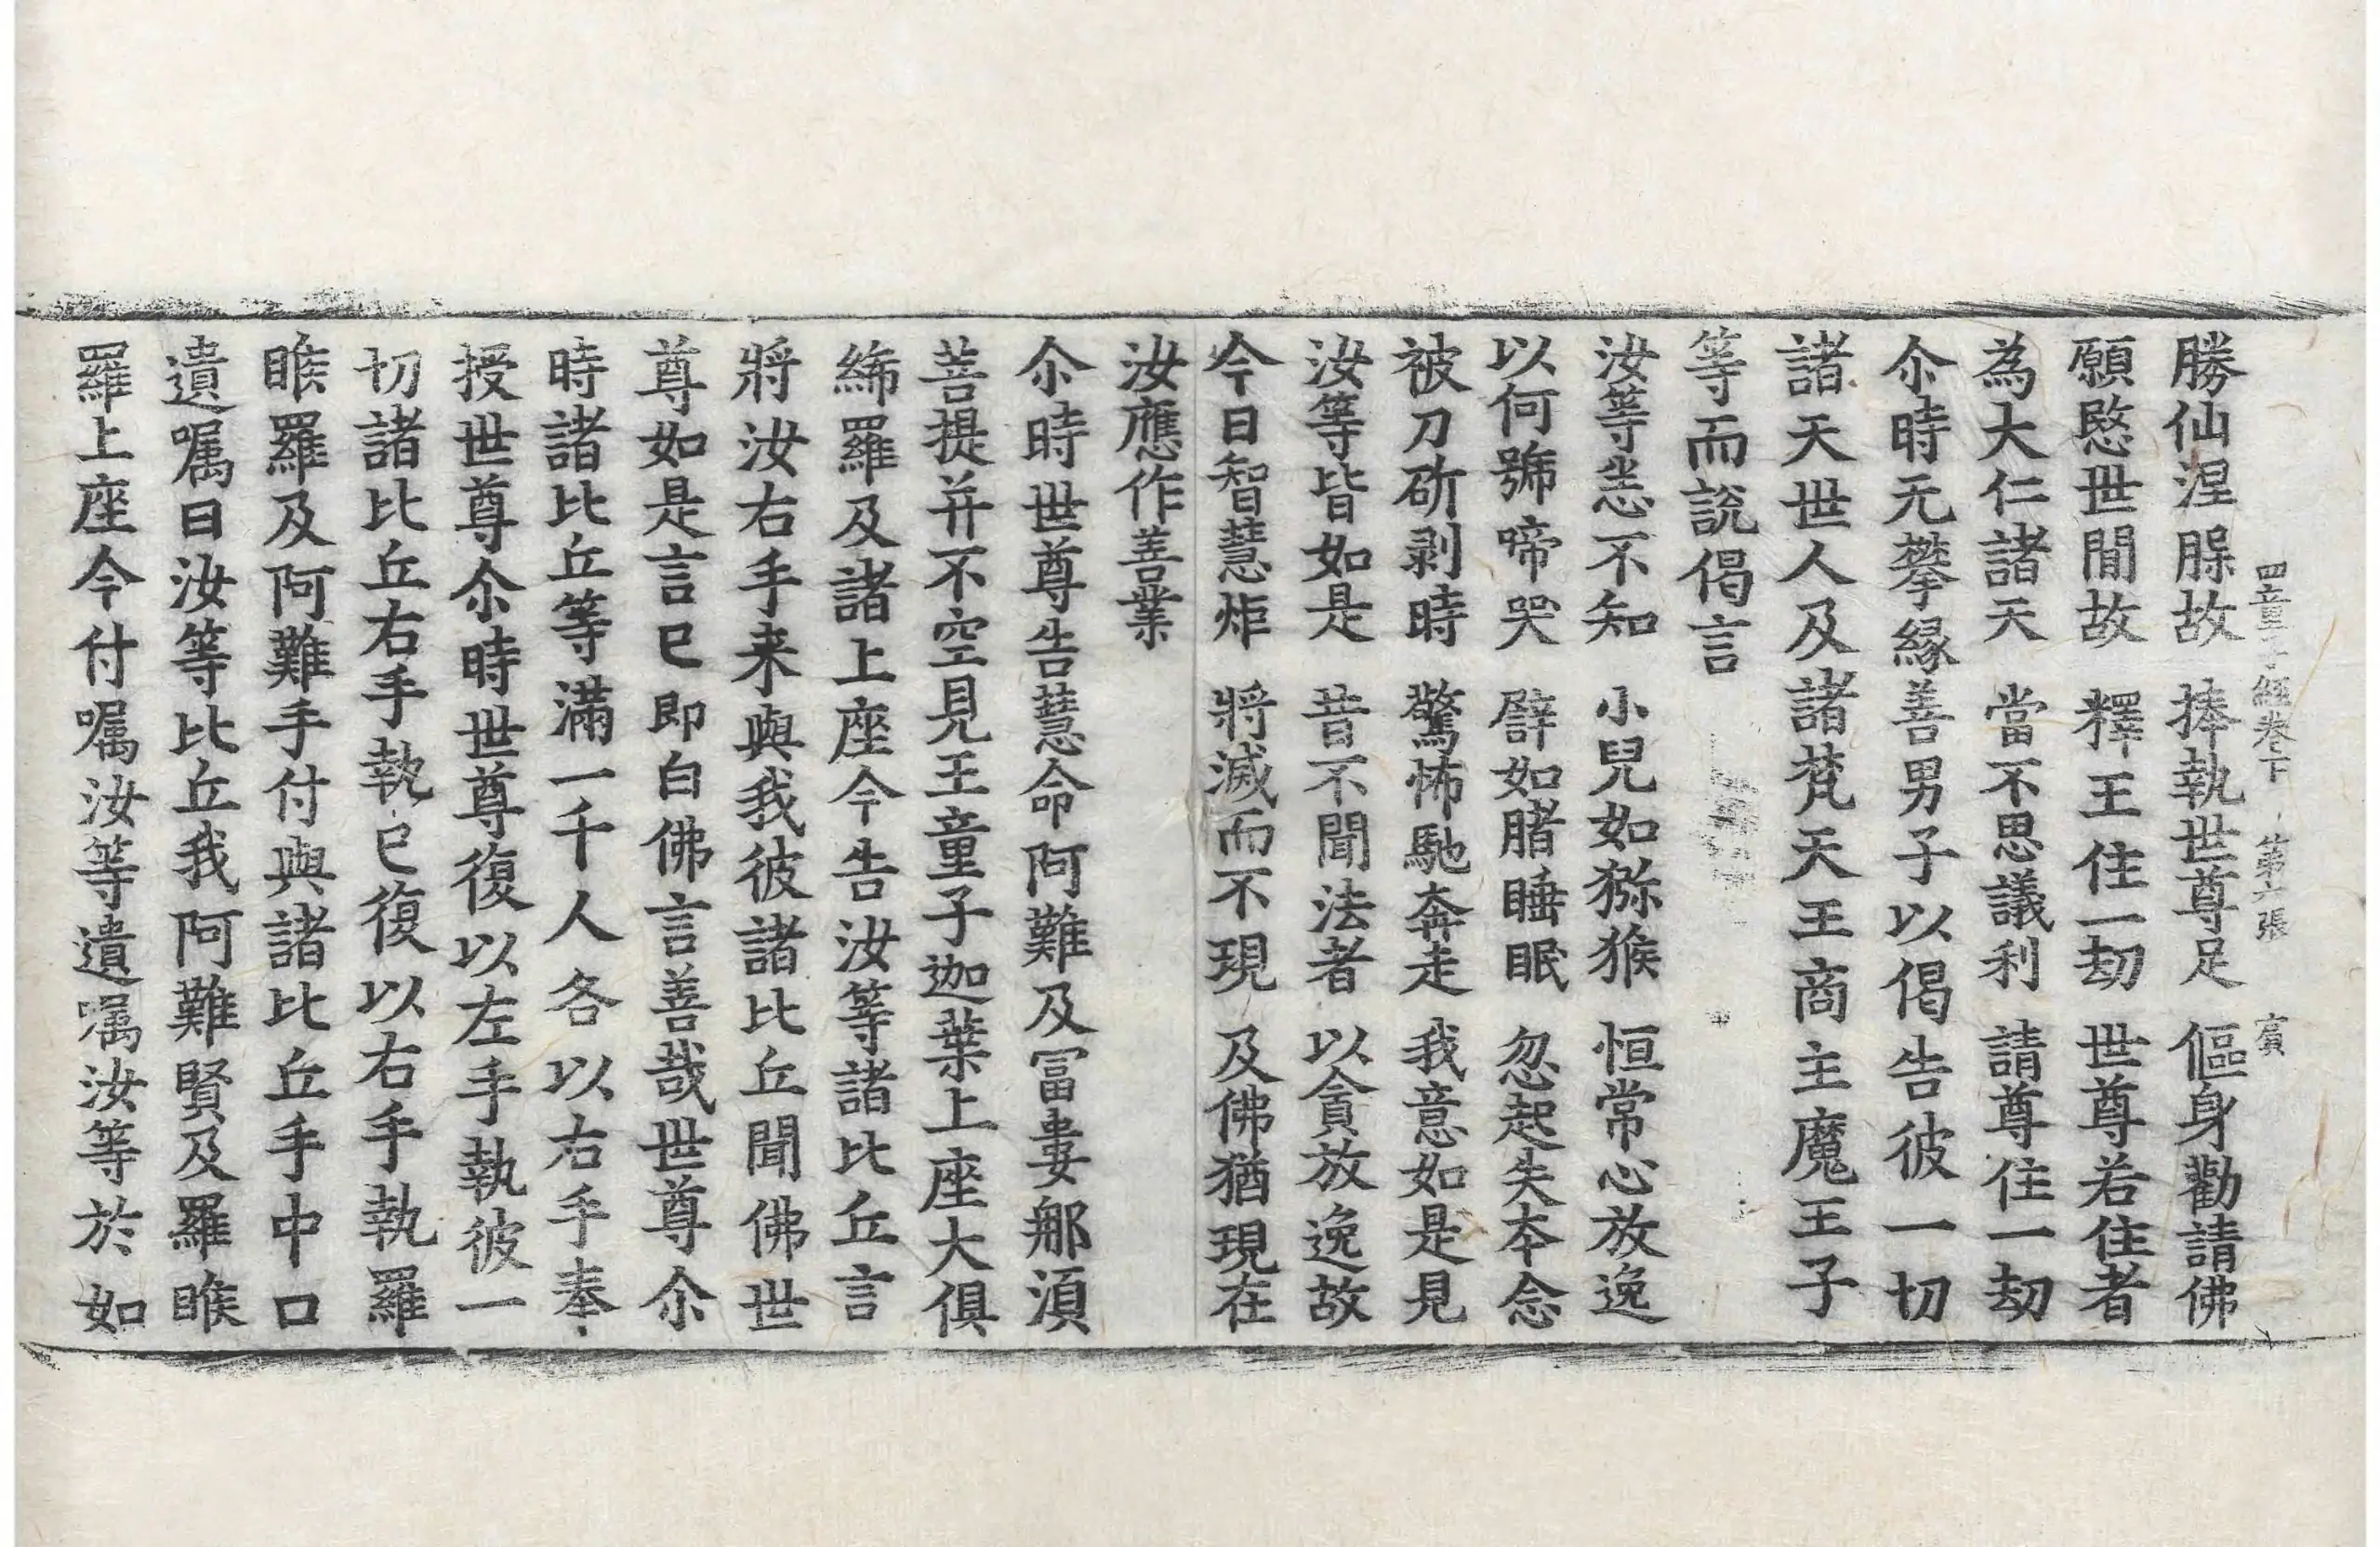 四童子經卷下 第六張 賓
勝仙涅腂故 捧執世尊足 傴身勸請佛
願愍世間故 釋王住一劫 世尊若住者
為大仁諸天 當不思議利 請尊住一劫
尒時无攀緣善男子以偈告彼一切
諸天世人及諸梵天王商主魔王子
等而說偈言
汝等恙不知 小兒如猕猴 恒常心放逸
以何號啼哭 譬如睹睡眠 忽起失夲念
被刀斫剥時 驚怖馳奔走 我意如是見
汝等皆如是 昔不聞法者 以貪放逸故
今日智慧炬 將滅而不現 及佛猶現在
汝應作善業
尒時世尊告慧命阿難及冨婁郍湏
菩提并不空見王童子迦葉上座大俱
絺羅及諸上座今告汝等諸比丘言
將汝右手来與我彼諸比丘聞佛世
尊如是言已即白佛言善哉世尊尒
時諸比丘等滿一千人各以右手奉
授世尊尒時世尊復以左手執彼一
切諸比丘右手執已復以右手執羅
睺羅及阿難手付與諸比丘手中口
遺嘱曰汝等比丘我阿難賢及羅睺
羅上座今付嘱汝等遺嘱汝等於如